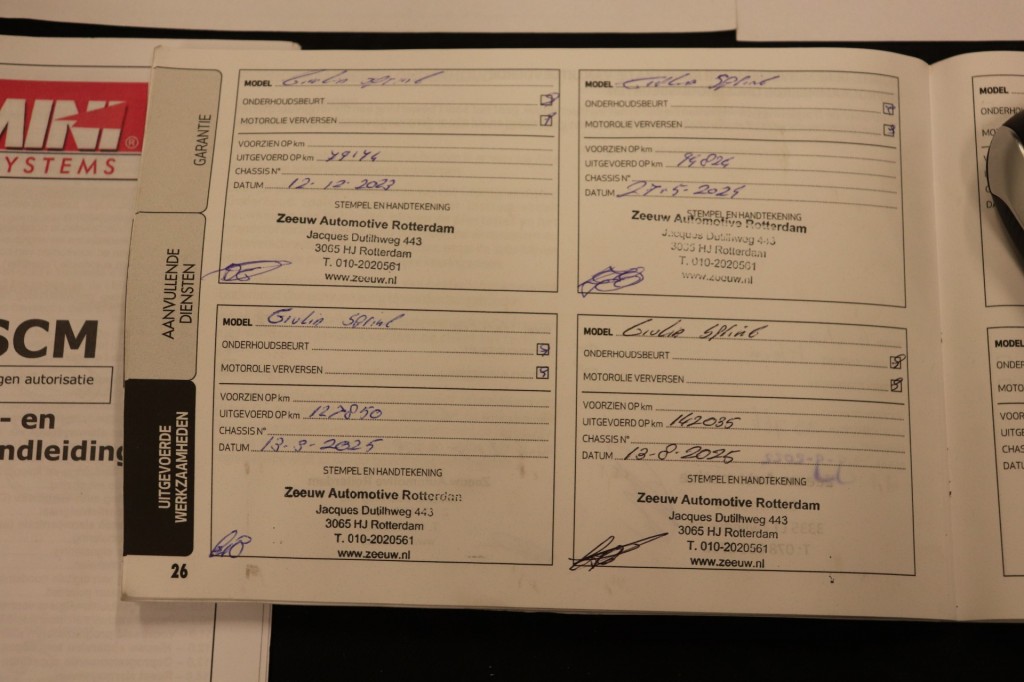 MINI®
SYSTEMS
SCM
gen autorisatie
- en
ndleiding
GARANTIE
AANVULLENDE
DIENSTEN
UITGEVOERDE
WERKZAAMHEDEN
26
MODEL Giulia Sprint
ONDERHOUDSBEURT
MOTOROLIE VERVERSEN
VOORZIEN OP km
UITGEVOERD OP km
CHASSIS N°
DATUM 12-12-2023
STEMPEL EN HANDTEKENING
Zeeuw Automotive Rotterdam
Jacques Dutilhweg 443
3065 HJ Rotterdam
T. 010-2020561
www.zeeuw.nl
MODEL Giulia Sprint
ONDERHOUDSBEURT
MOTOROLIE VERVERSEN
VOORZIEN OP km
UITGEVOERD OP km 94824
CHASSIS N°
DATUM 27-5-2024
STEMPEL EN HANDTEKENING
Zeeuw Automotive Rotterdam
Jacques Dutilhweg 443
3065 HJ Rotterdam
T. 010-2020561
www.zeeuw.nl
MODEL Giulia Sprint
ONDERHOUDSBEURT
MOTOROLIE VERVERSEN
VOORZIEN OP km
UITGEVOERD OP km 127850
CHASSIS N°
DATUM 13-3-2025
STEMPEL EN HANDTEKENING
Zeeuw Automotive Rotterdam
Jacques Dutilhweg 443
3065 HJ Rotterdam
T. 010-2020561
www.zeeuw.nl
MODEL Giulia Sprint
ONDERHOUDSBEURT
MOTOROLIE VERVERSEN
VOORZIEN OP km
UITGEVOERD OP km 142035
CHASSIS N°
DATUM 13-8-2025
STEMPEL EN HANDTEKENING
Zeeuw Automotive Rotterdam
Jacques Dutilhweg 443
3065 HJ Rotterdam
T. 010-2020561
www.zeeuw.nl
MODEL
ONDE
MOTO
MODEL
ONDER
MOTO
VOOR
UITG
CHAS
DATU